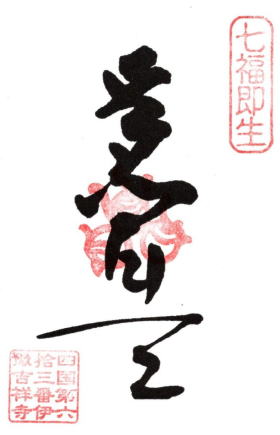 七福即生
毘沙門天
四国第六
拾三番伊
豫吉祥寺